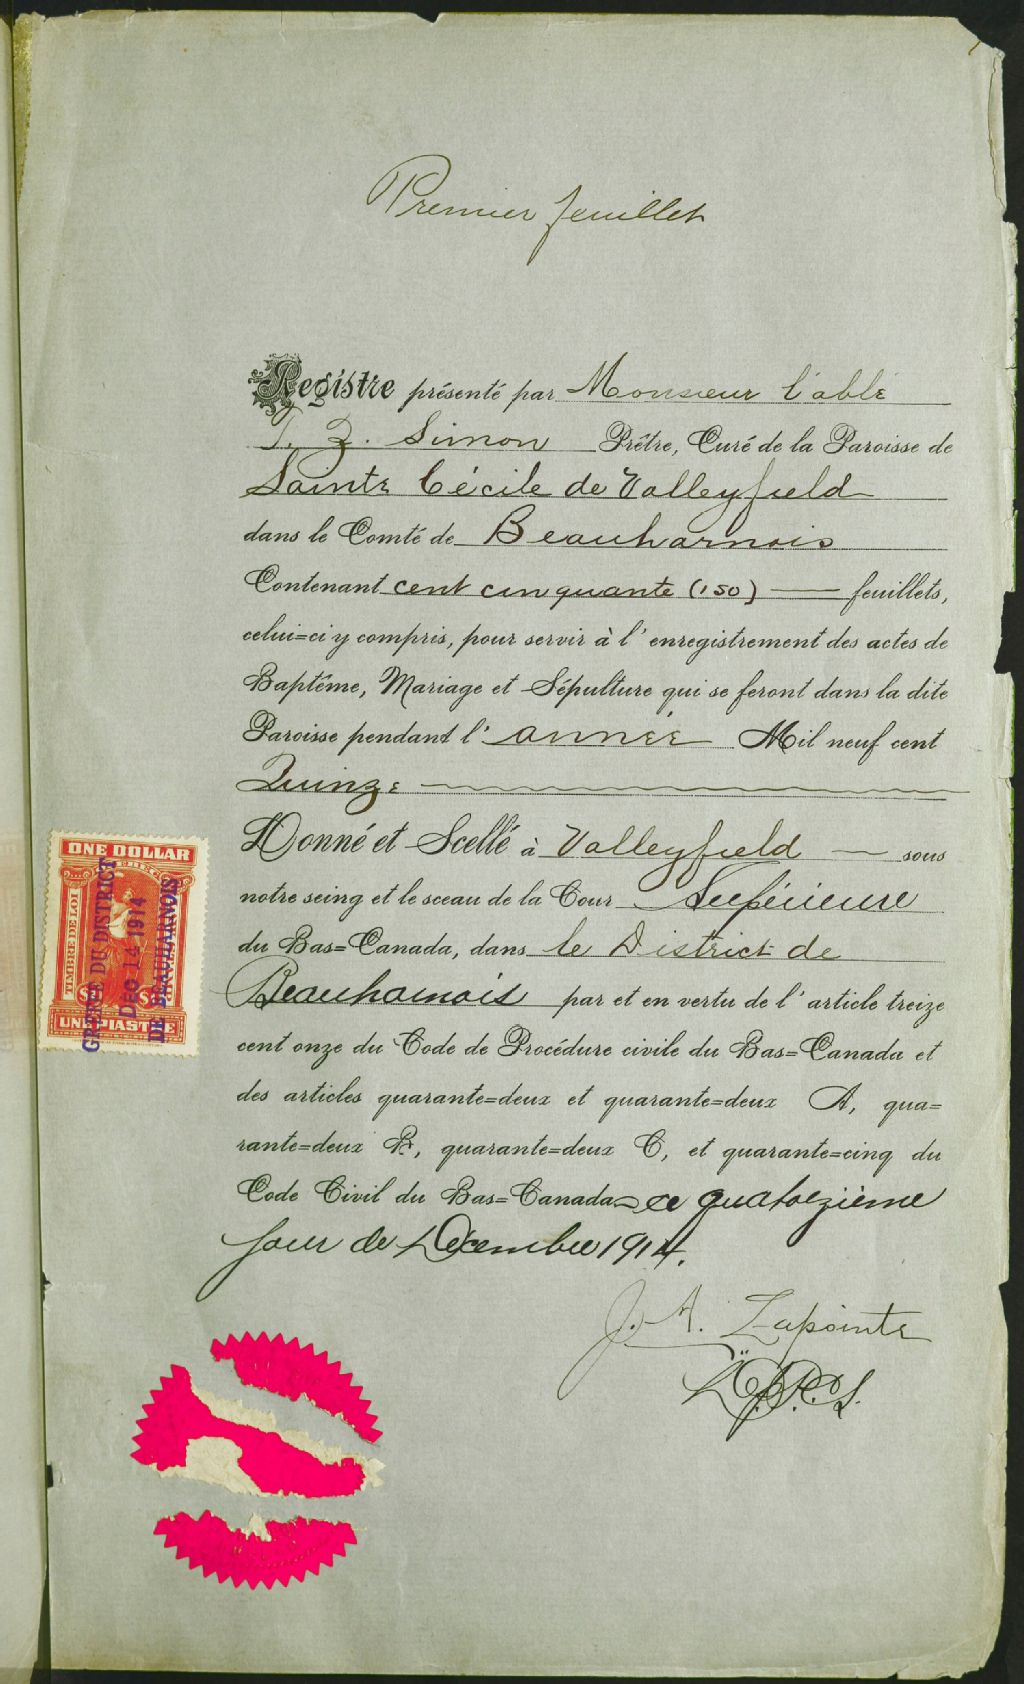 Premier feuillet
Registre présenté par Monsieur l'abbé
J. Z. Simon Prêtre, Curé de la Paroisse de
Sainte Cécile de Valleyfield
dans le Comté de Beauharnois
Contenant cent cinquante (150) feuillets,
celui=ci y compris, pour servir à l'enregistrement des actes de
Baptême, Mariage et Sépulture qui se feront dans la dite
Paroisse pendant l'année Mil neuf cent
Quinze
Donné et Scellé à Valleyfield sous
notre seing et le sceau de la Cour Supérieure
du Bas=Canada, dans le District de
Beauharnois par et en vertu de l'article treize
cent onze du Code de Procédure civile du Bas=Canada et
des articles quarante=deux et quarante=deux A, qua=
rante=deux B, quarante=deux C, et quarante=cinq du
Code Civil du Bas=Canada ce quatorzième
jour de Décembre 1914.
J. A. Lapointe
ONE DOLLAR
TIMBRE DE LOI
$1 $1
UNE PIASTRE
GREFFE DU DISTRICT
DEC 14 1914
DE BEAUHARNOIS